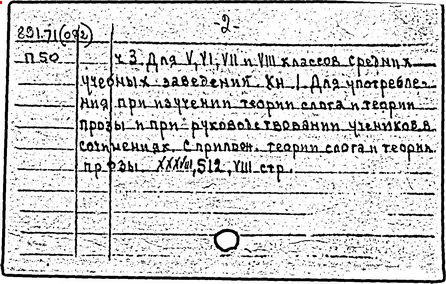 2
891.71(082)
П50 ч 3. Для V, VI, VII и VIII классов средних
учебных заведений. Кн. 1. Для употребле-
ния при изучении теории слога и теории
прозы и при руководствовании учеников в
сочинениях. С прилож. теории слога и теории
прозы. XXXVIII, 512, VIII стр.